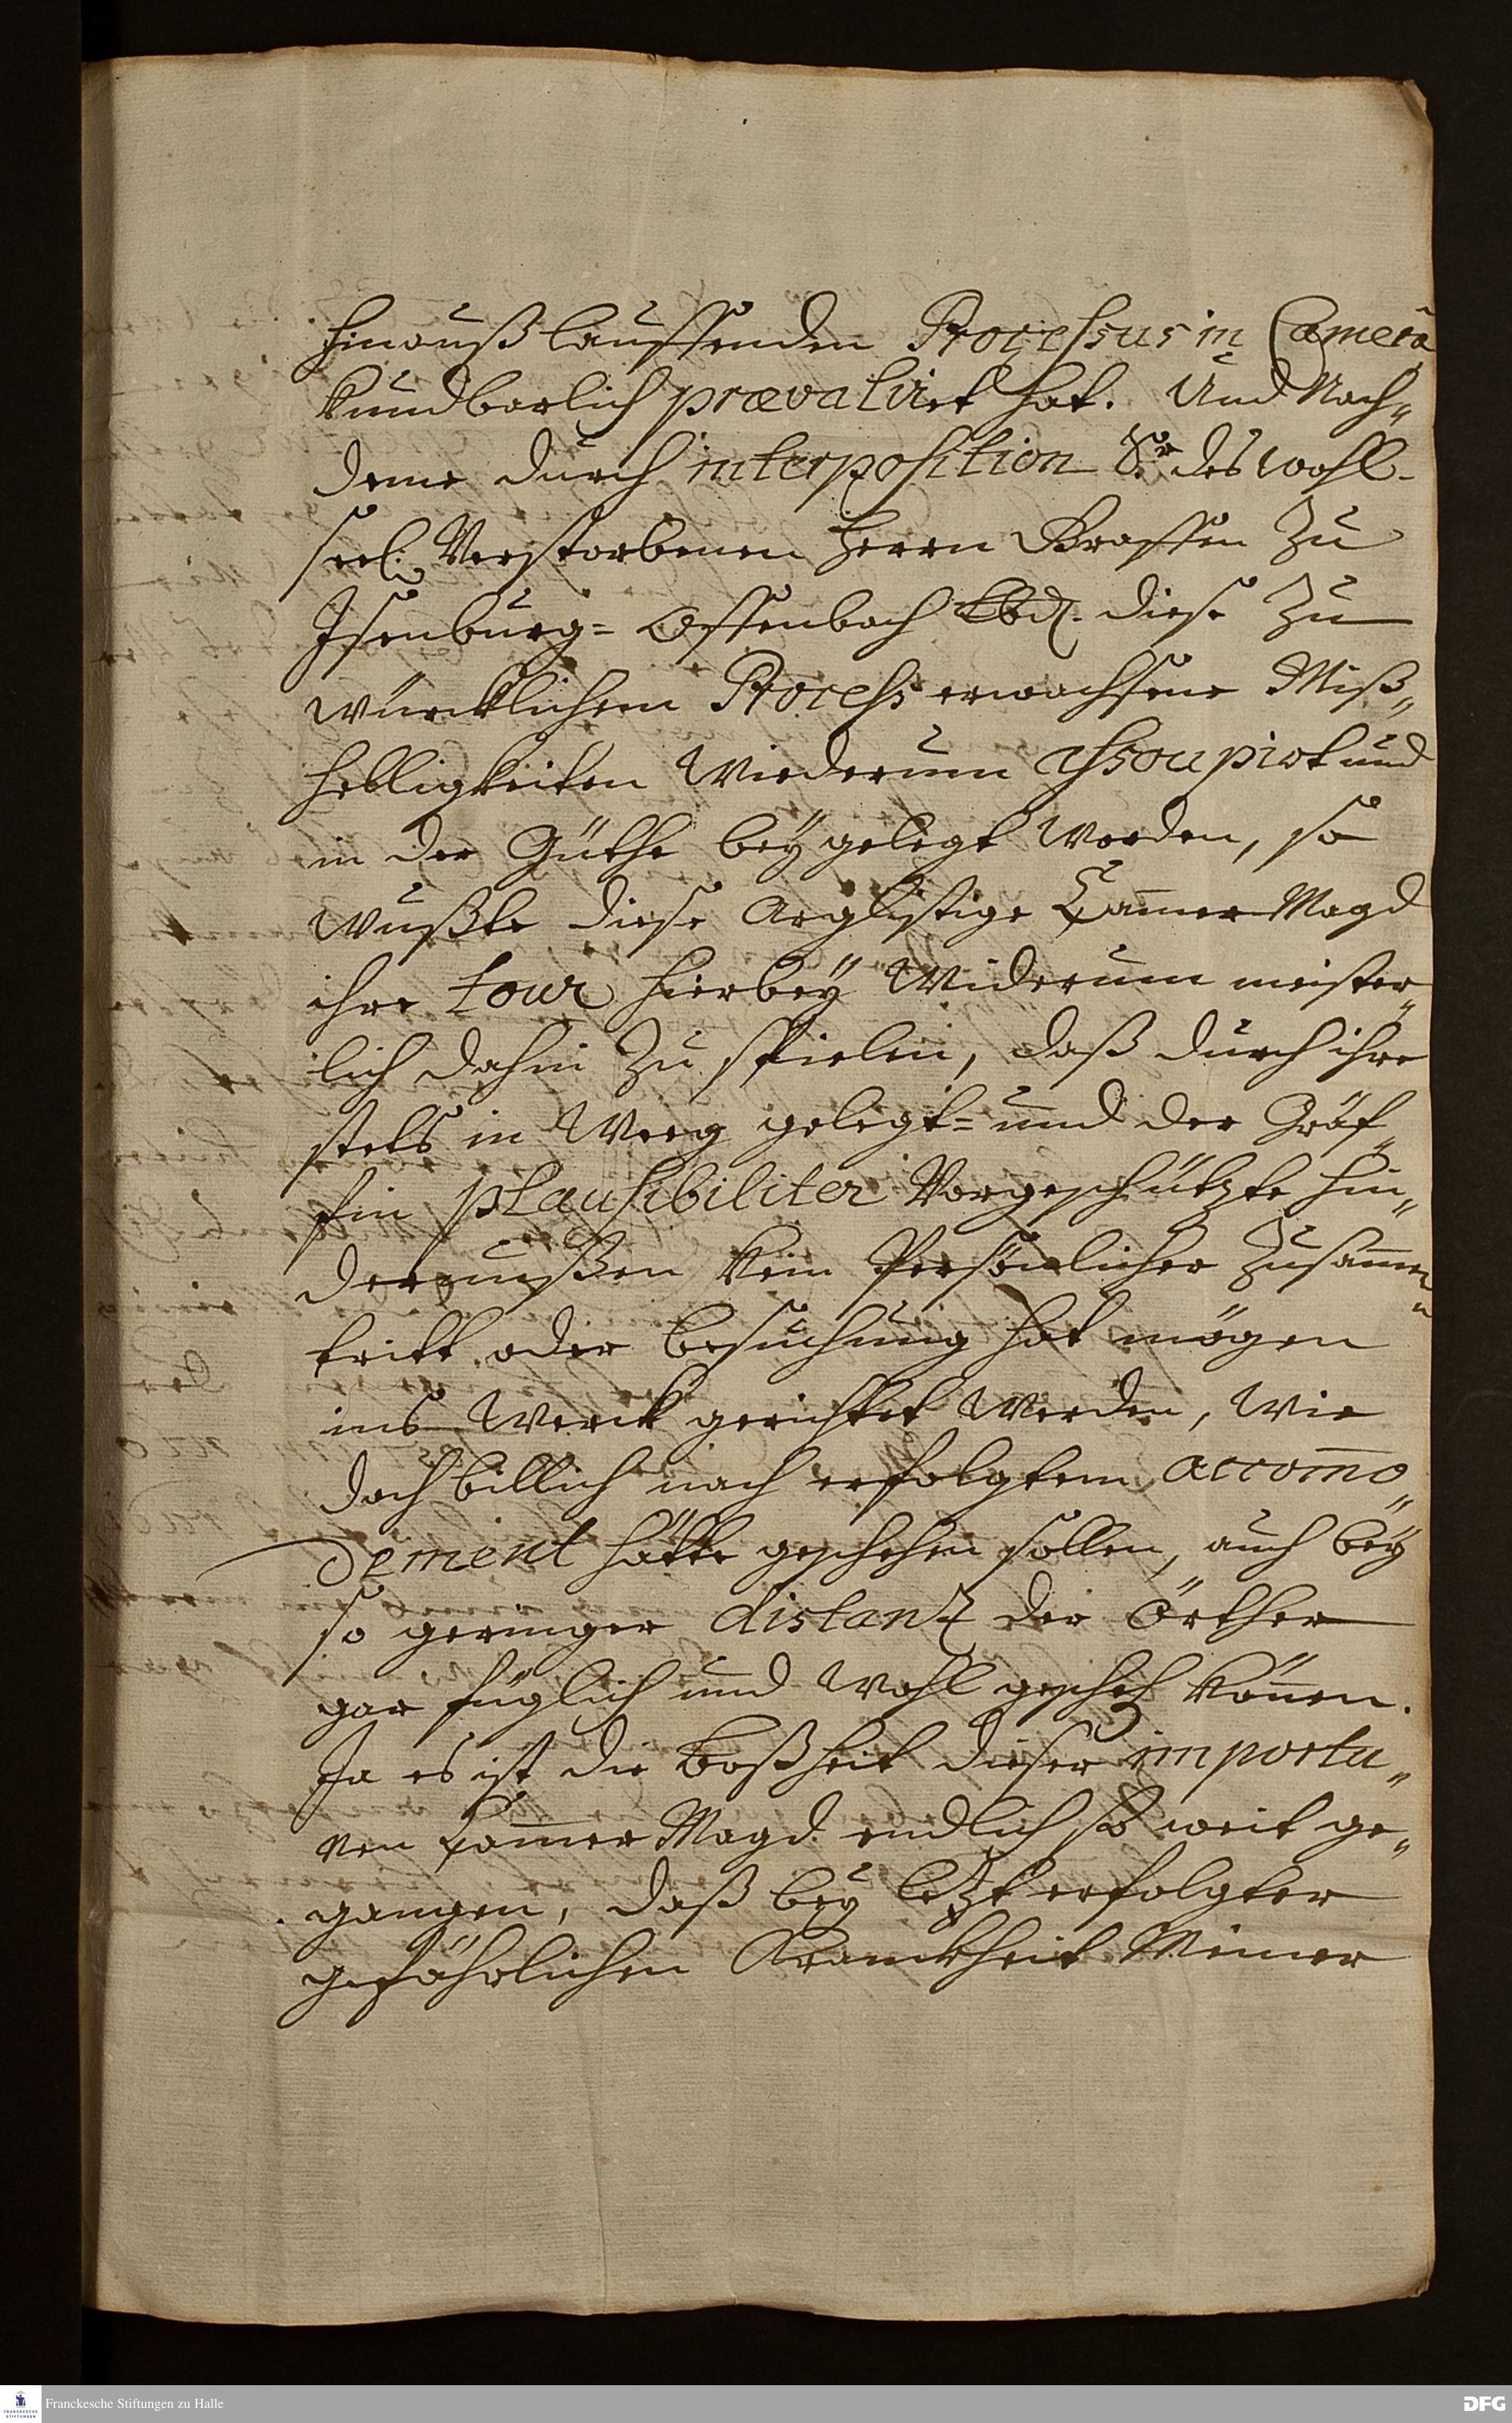 hinauß lauffenden Processus in Camerâ
kundbarlich prævaliret hat. Und Nach„
deme durch interposition Sr. des wohl-
seel. Verstorbenen Herrn Graffen Zu
Isenburg= Offenbach Lbd. diese Zu
würcklichem Process erwachsene Miß„
helligkeiten Wiederum assoupirt und
in der Güthe beÿgelegt Worden, so
Wußte diese Arglistige Cam̄er Magd
ihre tour hierbeÿ Widerum meister„
lich dahin Zu spielen, daß durch ihre
stets in Weeg gelegt= und der Gräf„
fin plausibiliter Vorgeschützte Hin„
dernußen kein Persönlicher Zusam̄en„
tritt oder besuchung hat mögen
ins Werck gerichtet Werden, Wie
doch billich nach erfolgtem accom̄o„
dement hätte geschehen sollen, auch beÿ
so geringer distantz der Örther
gar füglich und Wohl gescheh können.
Ja es ist die Boßheit dieser importu„
nen Cam̄er Magd endlich so weit ge„
gangen, daß beÿ letzt erfolgter
gefährlichen Kranckheit Meiner
Franckesche Stiftungen zu Halle
FRANCKESCHE STIFTUNGEN
DFG